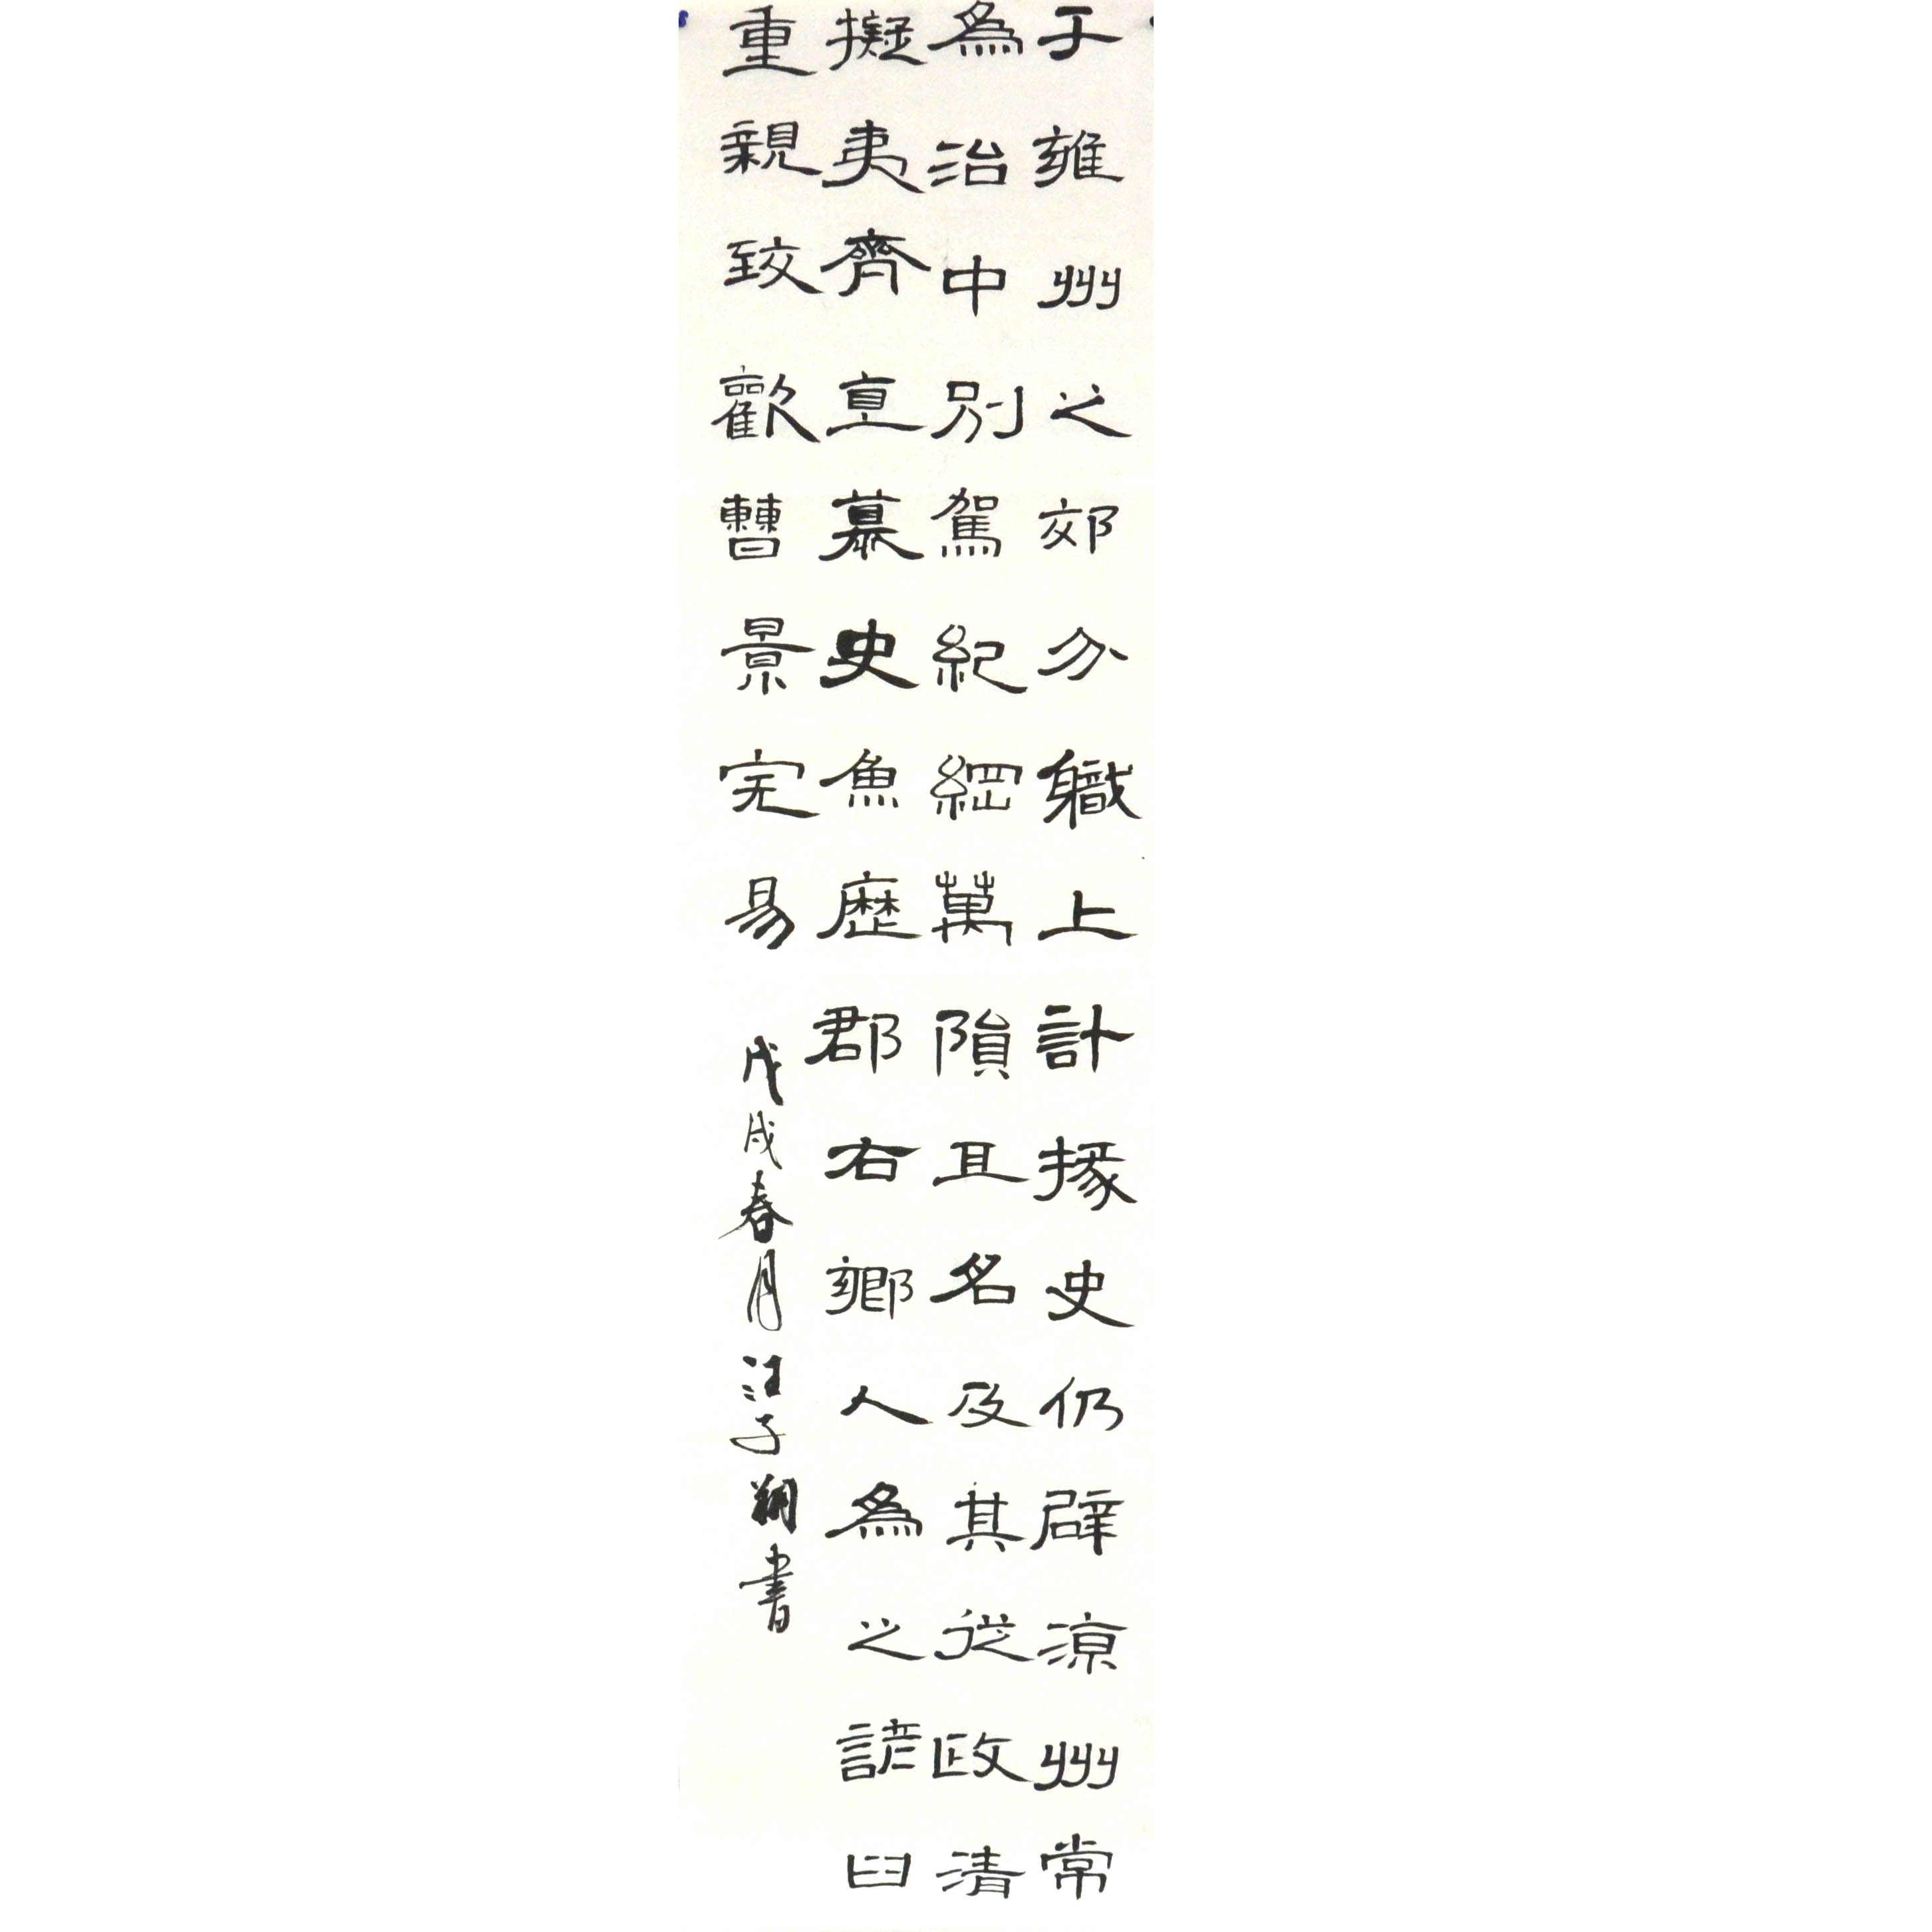 于雍州之郊分職上計掾史仍辟凉州常
為治中別駕紀綱萬隕且名及其從政清
擬夷齊直慕史魚歷郡右鄉人為之諺曰
重親致歡曹景完易 戊戌春月汪子翔書